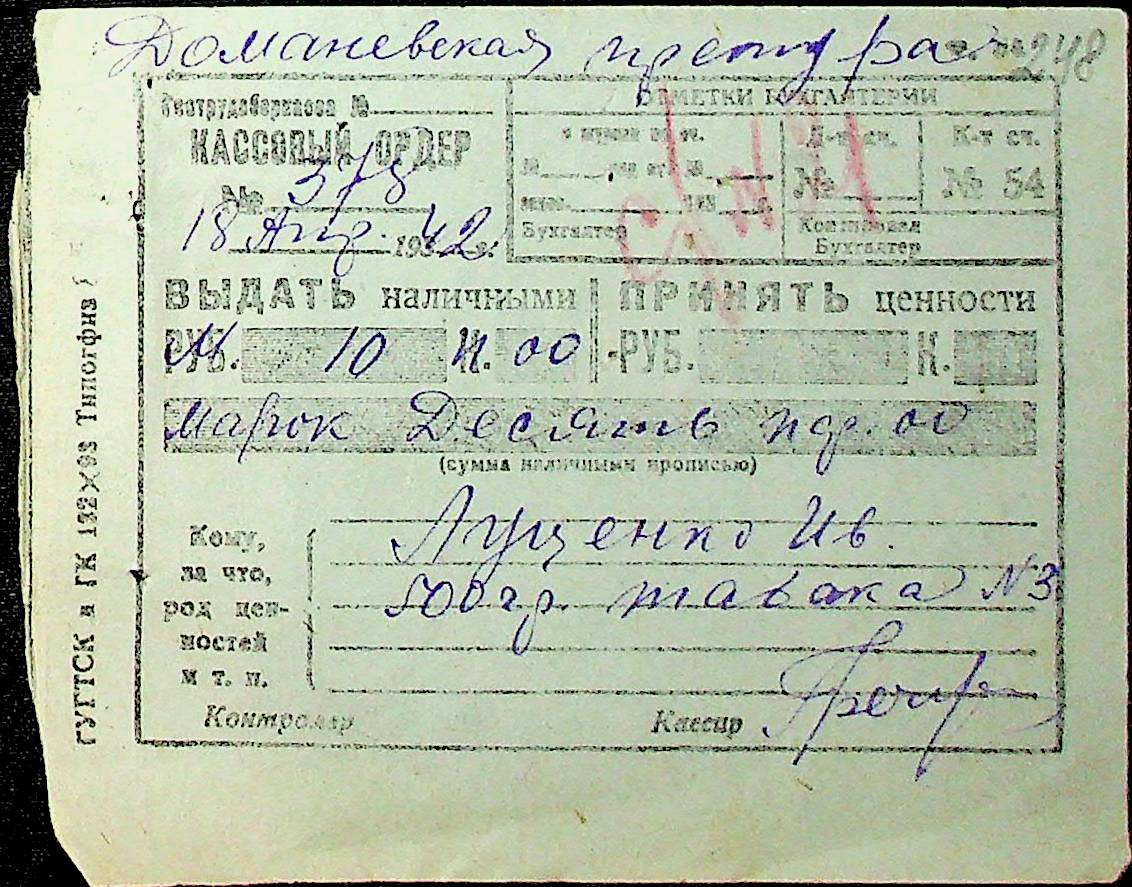 Доманевская претура
248
Гострудсберкасса №
КАССОВЫЙ ОРДЕР
№ 378
18 Апр. 1942 г.
ОТМЕТКИ БУХГАЛТЕРИИ
Д-т сч.
К-т сч.
№
№ 54
Бухгалтер
Контровая
Бухгалтер
ВЫДАТЬ наличными
ПРИНЯТЬ ценности
РУБ. М. 10 К. п. 00
РУБ. К.
марок Десять пф. 00
(сумма наличными прописью)
Кому,
за что,
род цен-
ностей
и т. п.
Луценко Ив.
500 гр. табака N3
Контролер
Кассир
ГУТТСК и ГК 132×93 Типогфия